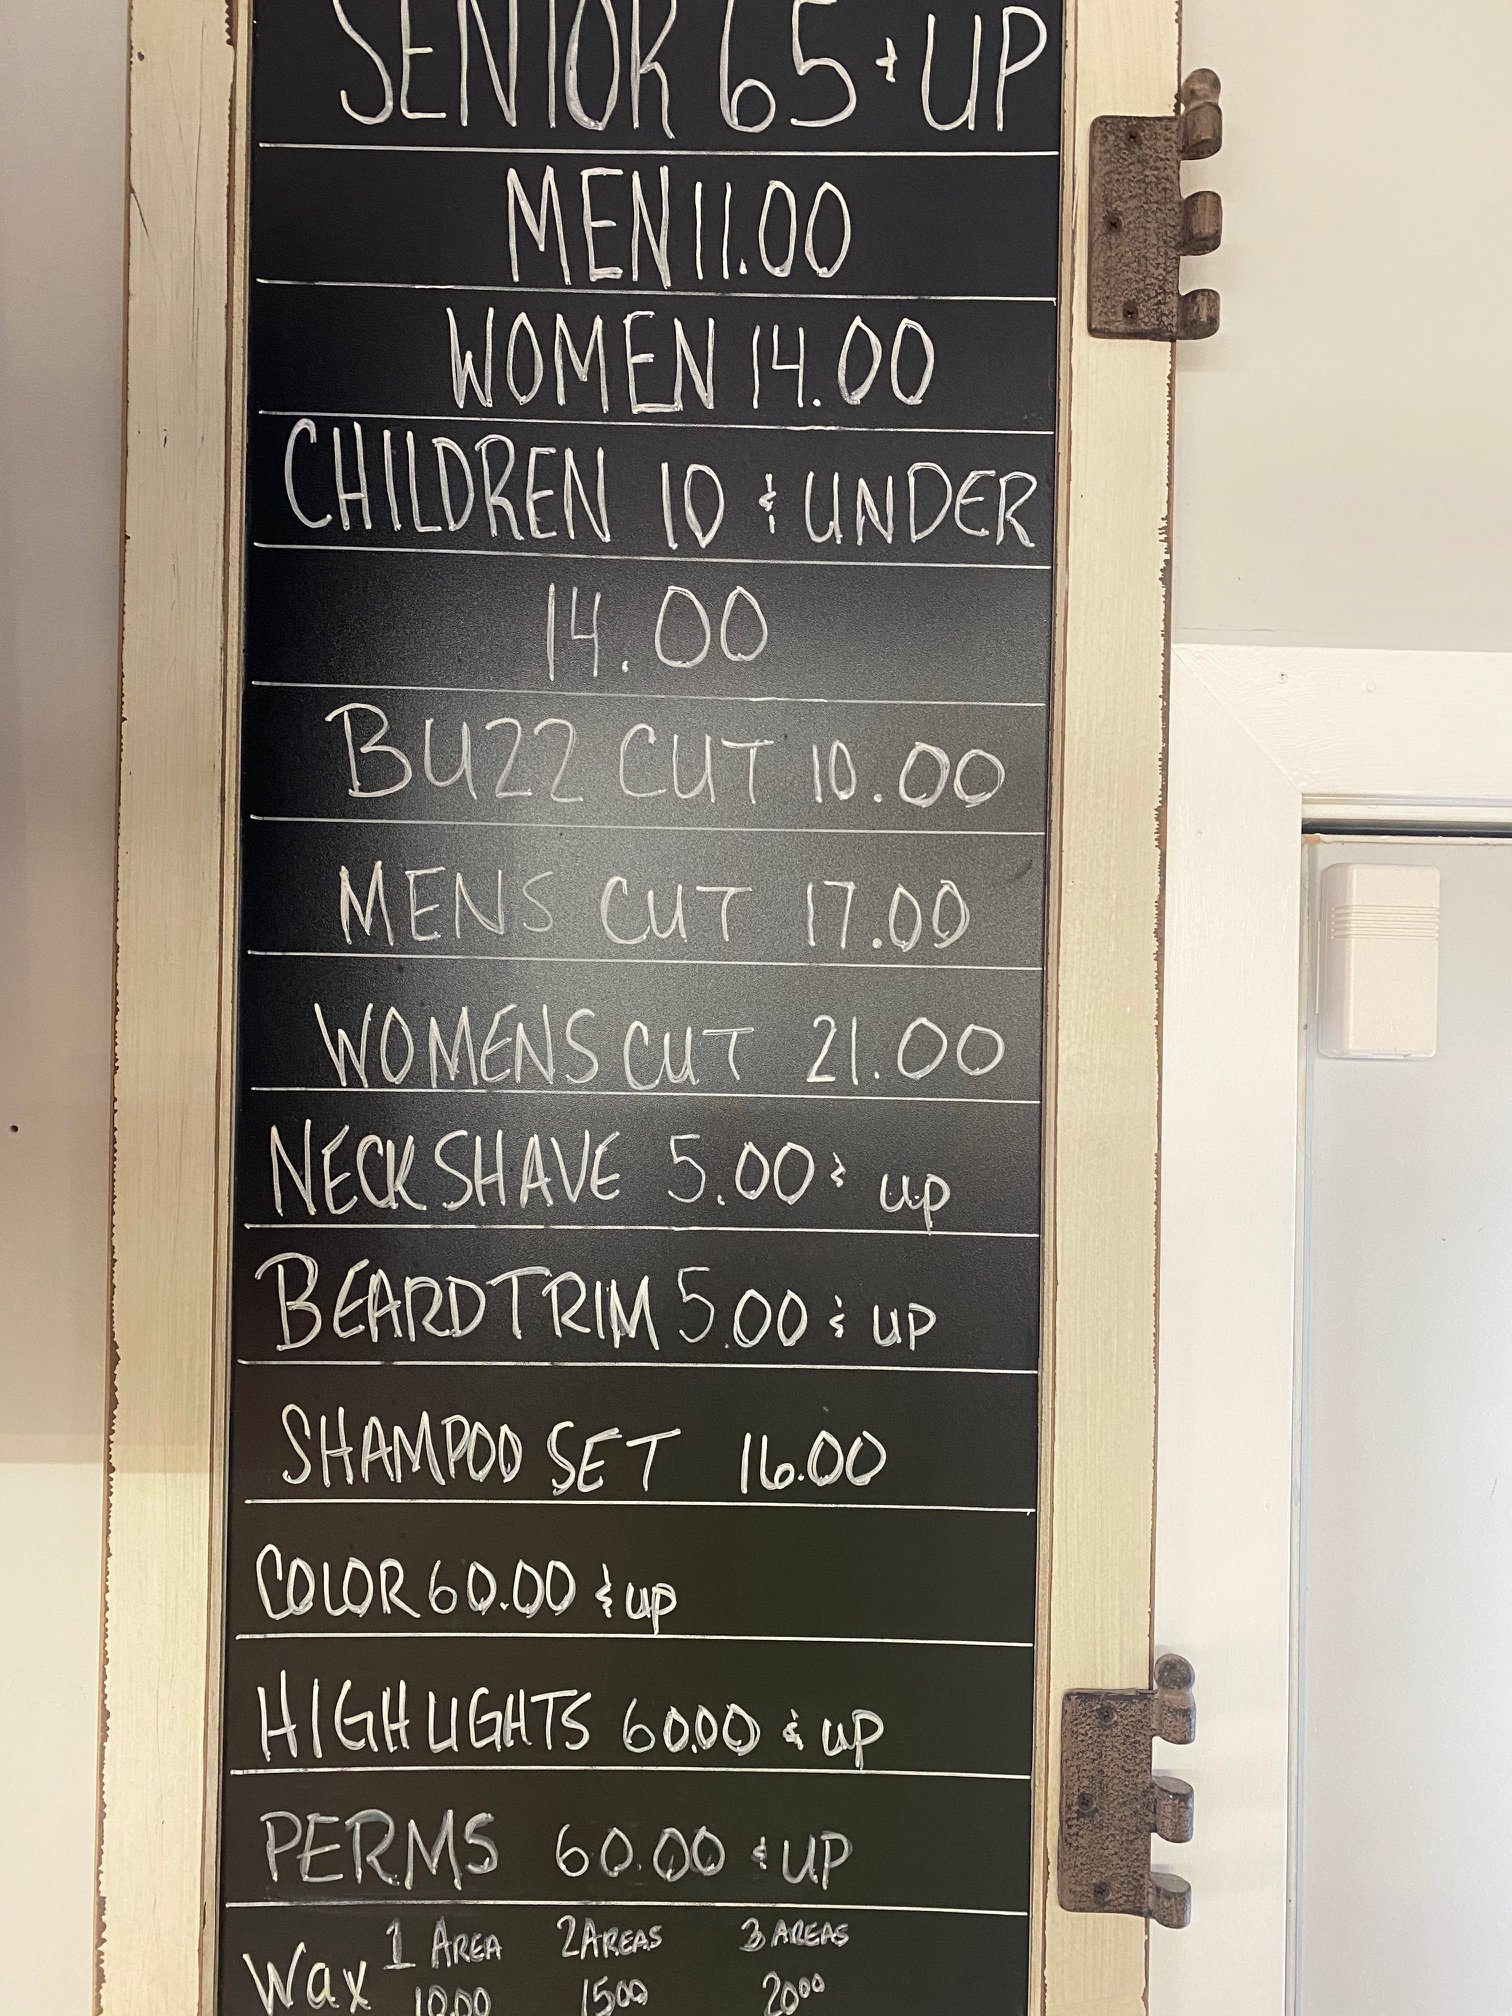 SENIOR 65 + UP
MEN 11.00
WOMEN 14.00
CHILDREN 10 & UNDER
14.00
BUZZ CUT 10.00
MENS CUT 17.00
WOMENS CUT 21.00
NECK SHAVE 5.00 & up
BEARD TRIM 5.00 & UP
SHAMPOO SET 16.00
COLOR 60.00 & up
HIGHLIGHTS 60.00 & up
PERMS 60.00 & UP
1 AREA 2 AREAS 3 AREAS
Wax 10.00 1500 2000